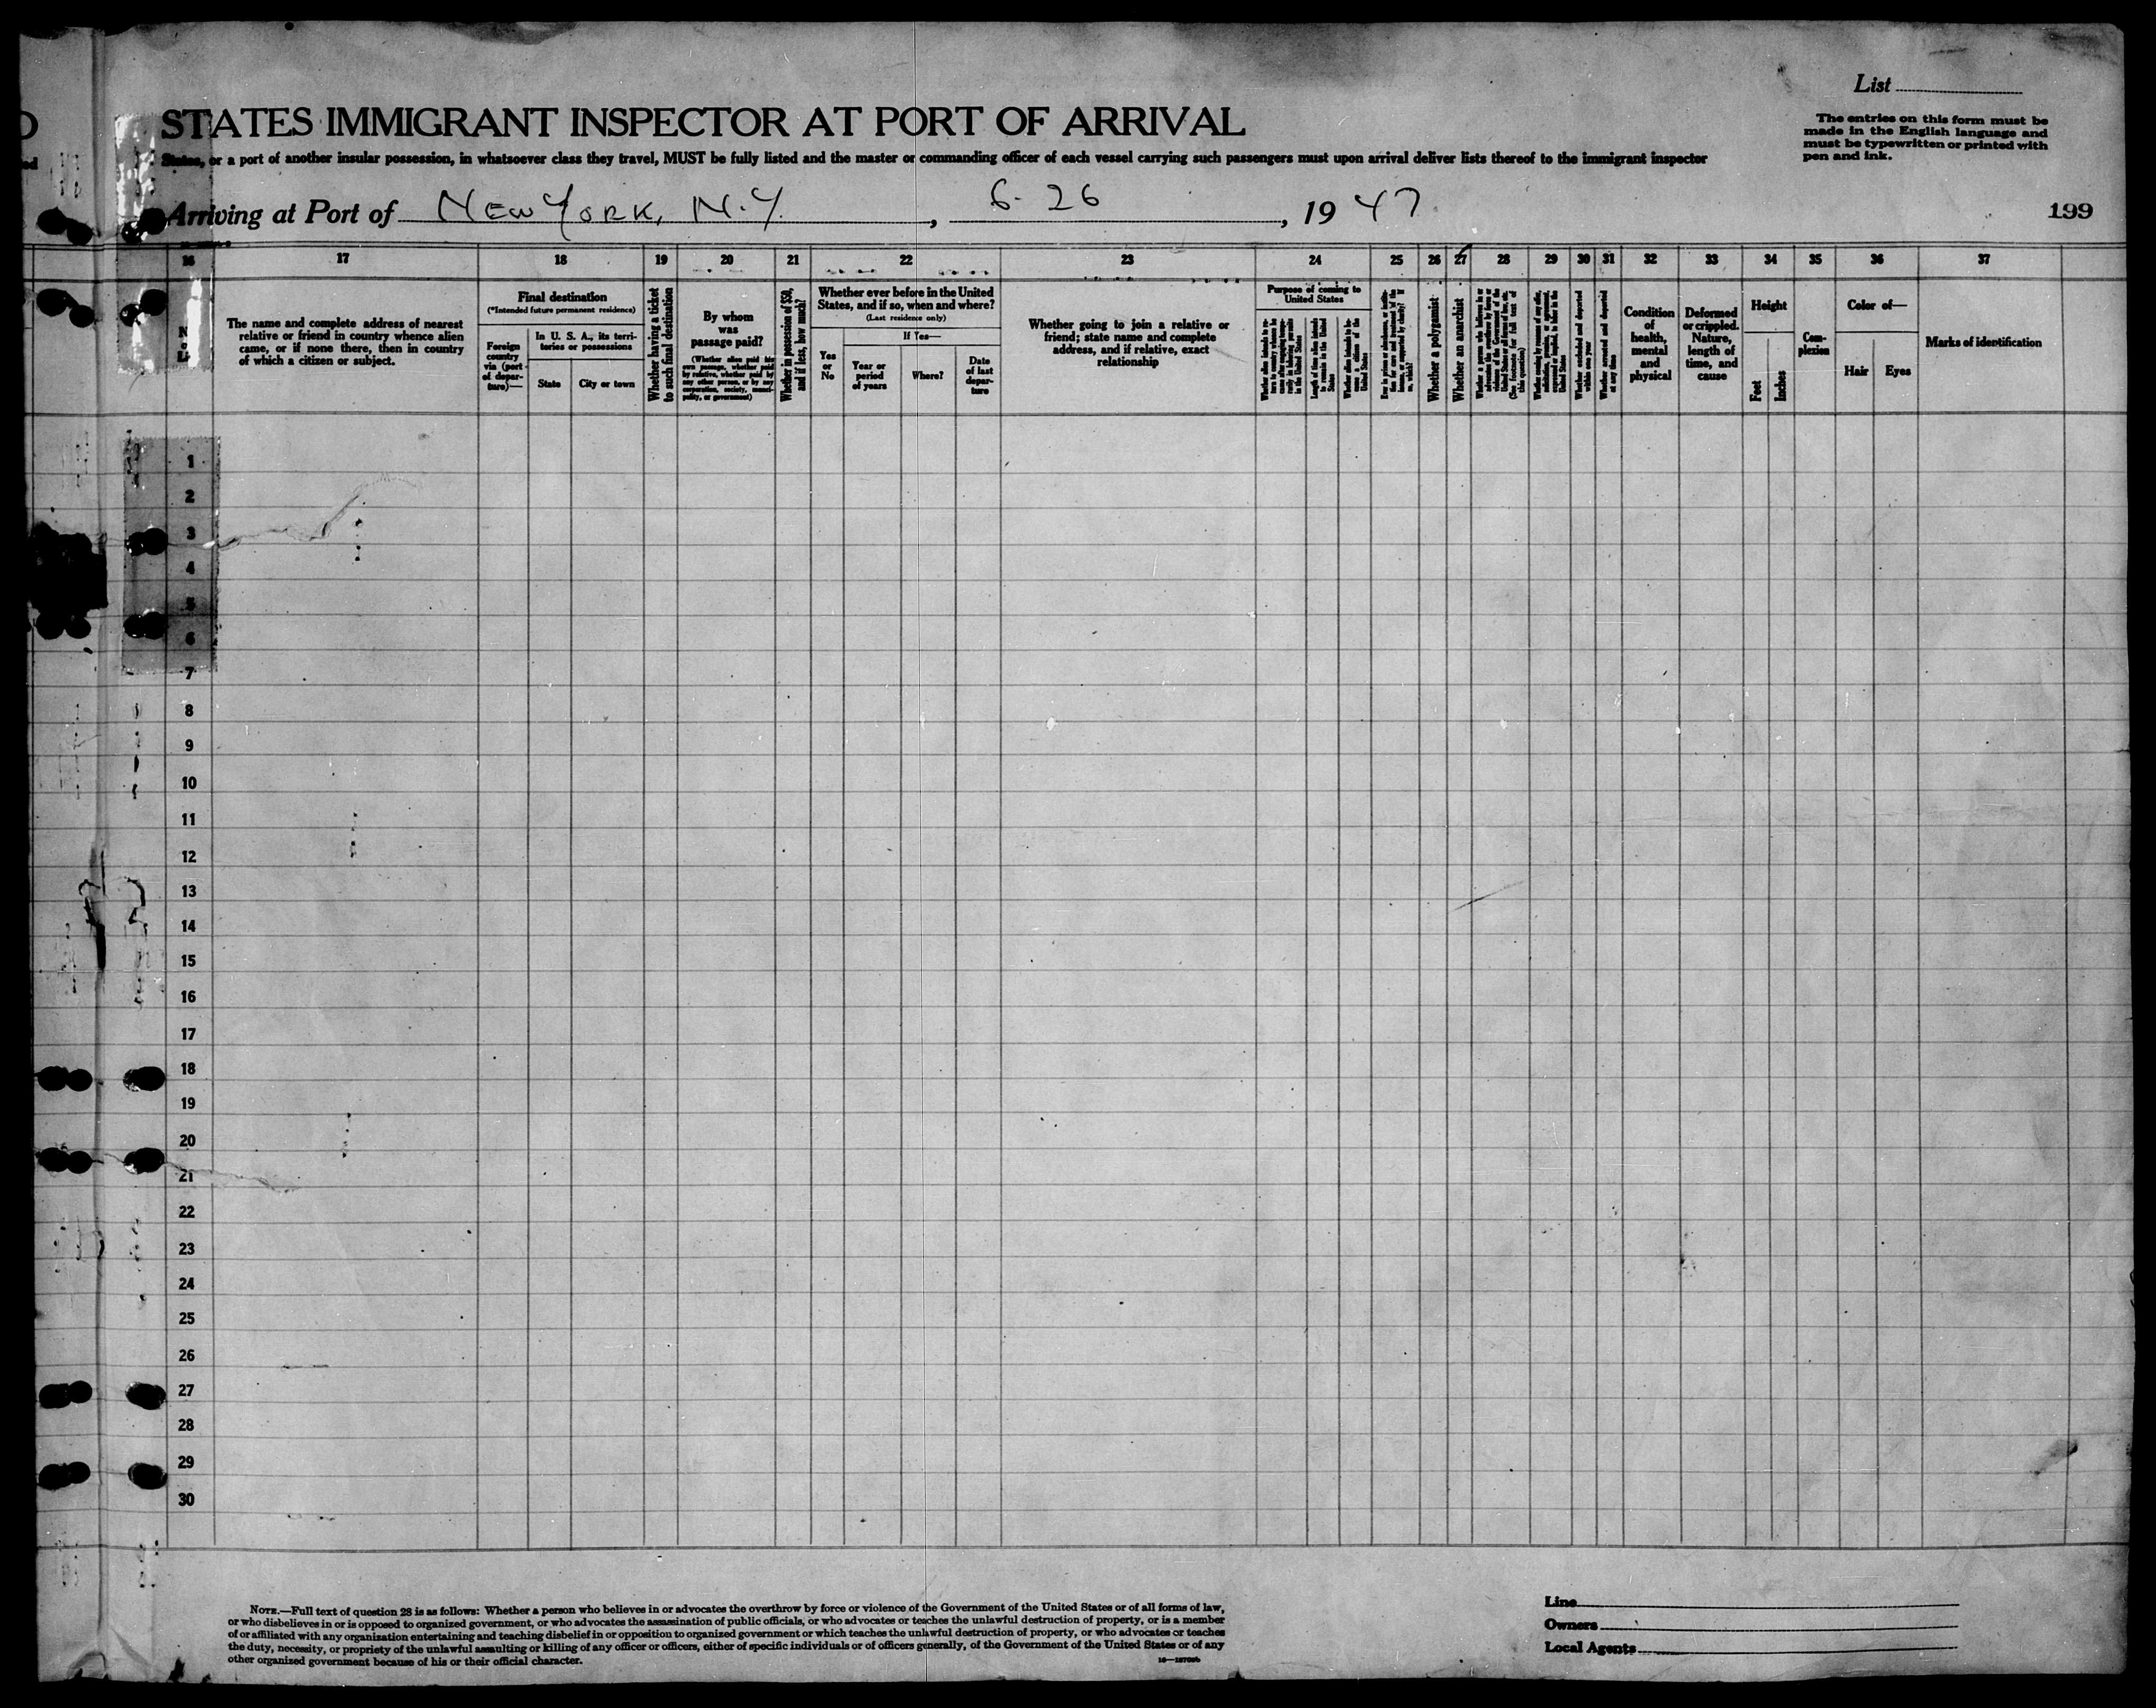 List
STATES IMMIGRANT INSPECTOR AT PORT OF ARRIVAL
The entries on this form must be
made in the English language and
must be typewritten or printed with
pen and ink.
States, or a port of another insular possession, in whatsoever class they travel, MUST be fully listed and the master or commanding officer of each vessel carrying such passengers must upon arrival deliver lists thereof to the immigrant inspector
Arriving at Port of New York, N.Y. , 6-26 , 19 47
199
16 17 18 19 20 21 22 23 24 25 26 27 28 29 30 31 32 33 34 35 36 37
The name and complete address of nearest
relative or friend in country whence alien
came, or if none there, then in country
of which a citizen or subject.
Final destination
(*Intended future permanent residence)
Foreign
country
via (port
of depar-
ture)—
In U. S. A., its terri-
tories or possessions
State
City or town
Whether having a ticket
to such final destination
By whom
was
passage paid?
(Whether alien paid his
own passage, whether paid
by relative, whether paid by
any other person, or by any
corporation, society, munici-
pality, or government)
Whether in possession of $50,
and if less, how much?
Whether ever before in the United
States, and if so, when and where?
(Last residence only)
Yes
or
No
If Yes—
Year or
period
of years
Where?
Date
of last
depar-
ture
Whether going to join a relative or
friend; state name and complete
address, and if relative, exact
relationship
Purpose of coming to
United States
Length of time alien intends
to remain in the United
States
Whether a polygamist
Whether an anarchist
Whether arrested and deported
at any time
Condition
of
health,
mental
and
physical
Deformed
or crippled.
Nature,
length of
time, and
cause
Height
Feet
Inches
Com-
plexion
Color of—
Hair
Eyes
Marks of identification
1
2
3
4
5
6
7
8
9
10
11
12
13
14
15
16
17
18
19
20
21
22
23
24
25
26
27
28
29
30
NOTE.—Full text of question 28 is as follows: Whether a person who believes in or advocates the overthrow by force or violence of the Government of the United States or of all forms of law,
or who disbelieves in or is opposed to organized government, or who advocates the assassination of public officials, or who advocates or teaches the unlawful destruction of property, or is a member
of or affiliated with any organization entertaining and teaching disbelief in or opposition to organized government or which teaches the unlawful destruction of property, or who advocates or teaches
the duty, necessity, or propriety of the unlawful assaulting or killing of any officer or officers, either of specific individuals or of officers generally, of the Government of the United States or of any
other organized government because of his or their official character.
Line
Owners
Local Agents